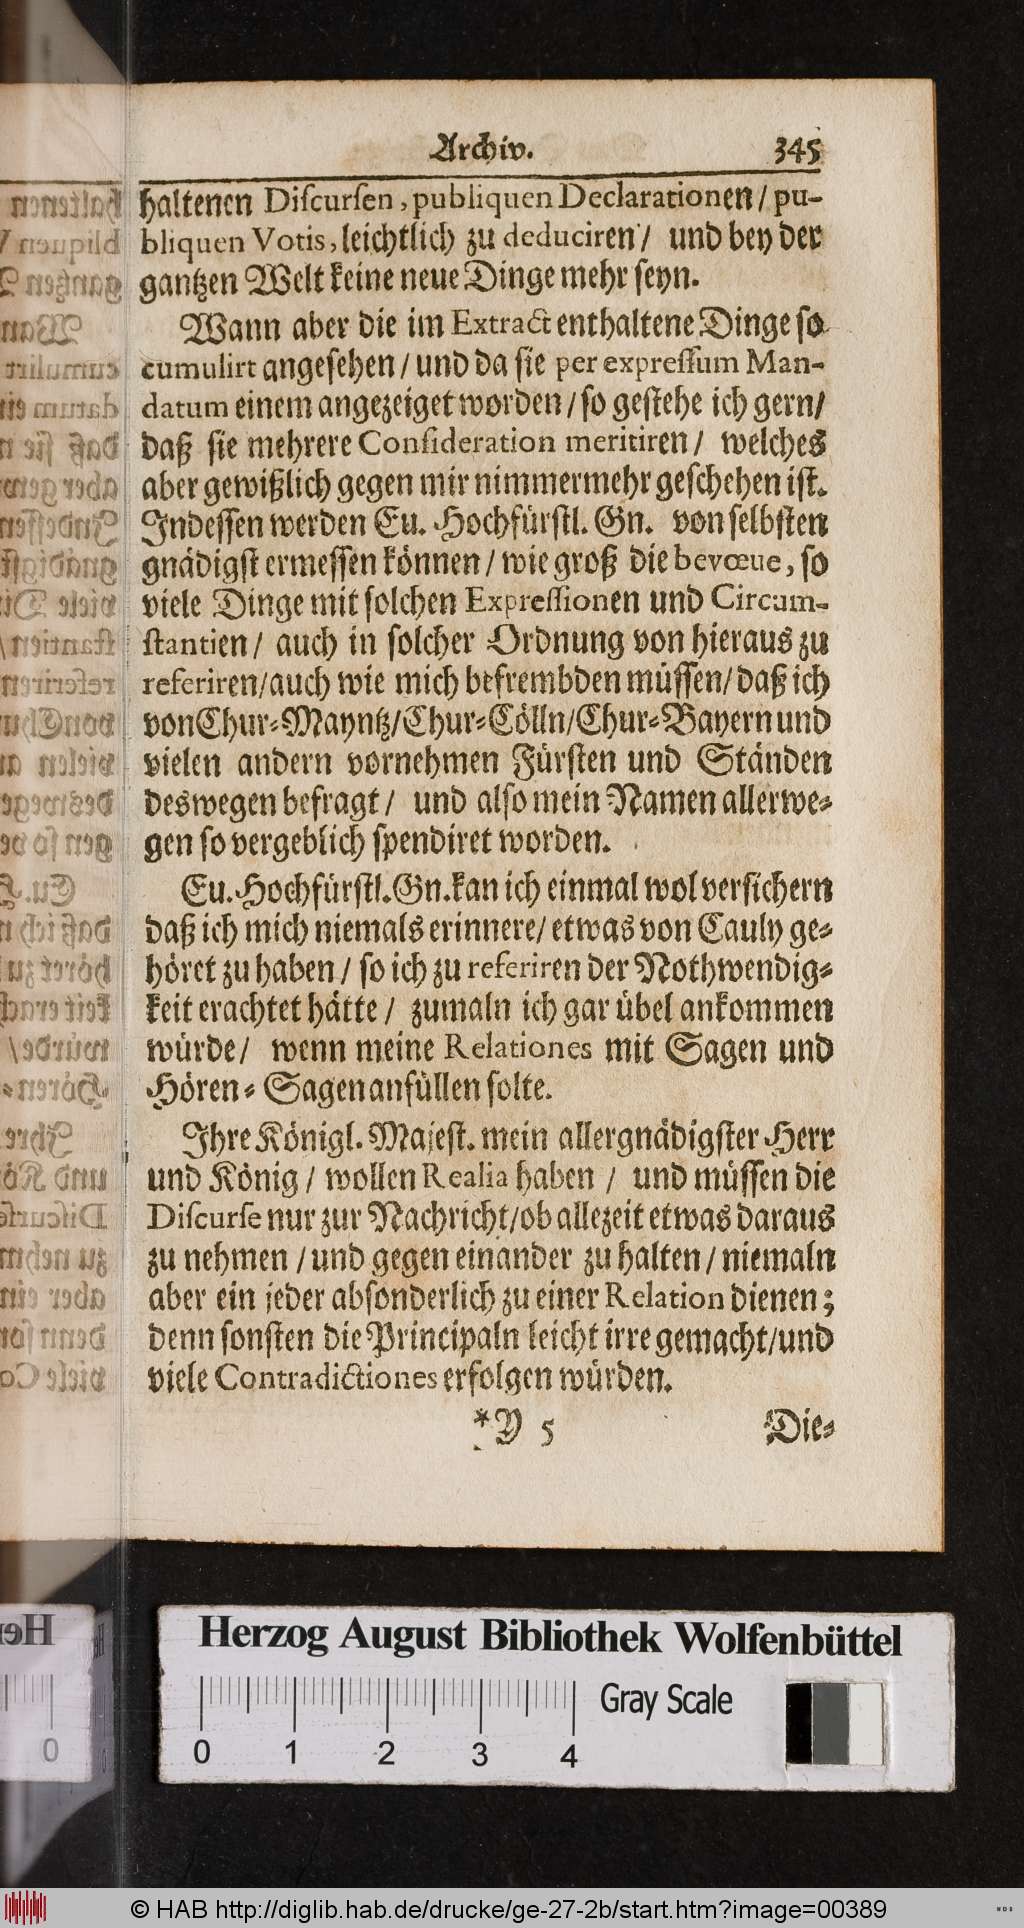 Archiv. 345
haltenen Diſcurſen, publiquen Declarationen / pu-
bliquen Votis, leichtlich zu deduciren / und bey der
gantzen Welt keine neue Dinge mehr ſeyn.
Wann aber die im Extract enthaltene Dinge ſo
cumulirt angeſehen / und da ſie per expreſſum Man-
datum einem angezeiget worden / ſo geſtehe ich gern /
daß ſie mehrere Conſideration meritiren / welches
aber gewißlich gegen mir nimmermehr geſchehen iſt.
Indeſſen werden Eu. Hochfürſtl. Gn. von ſelbſten
gnädigſt ermeſſen können / wie groß die bevœue, ſo
viele Dinge mit ſolchen Expreſſionen und Circum-
ſtantien / auch in ſolcher Ordnung von hieraus zu
referiren / auch wie mich befrembden müſſen / daß ich
von Chur-Mayntz / Chur-Cölln / Chur-Bayern und
vielen andern vornehmen Fürſten und Ständen
deswegen befragt / und alſo mein Namen allerwe-
gen ſo vergeblich ſpendiret worden.
Eu. Hochfürſtl. Gn. kan ich einmal wol verſichern
daß ich mich niemals erinnere / etwas von Cauly ge-
höret zu haben / ſo ich zu referiren der Nothwendig-
keit erachtet hätte / zumaln ich gar übel ankommen
würde / wenn meine Relationes mit Sagen und
Hören-Sagen anfüllen ſolte.
Ihre Königl. Majeſt. mein allergnädigſter Herr
und König / wollen Realia haben / und müſſen die
Diſcurſe nur zur Nachricht / ob allezeit etwas daraus
zu nehmen / und gegen einander zu halten / niemaln
aber ein jeder abſonderlich zu einer Relation dienen;
denn ſonſten die Principaln leicht irre gemacht / und
viele Contradictiones erfolgen würden.
*Y 5 Die-
Herzog August Bibliothek Wolfenbüttel
Gray Scale
0 1 2 3 4
© HAB http://diglib.hab.de/drucke/ge-27-2b/start.htm?image=00389